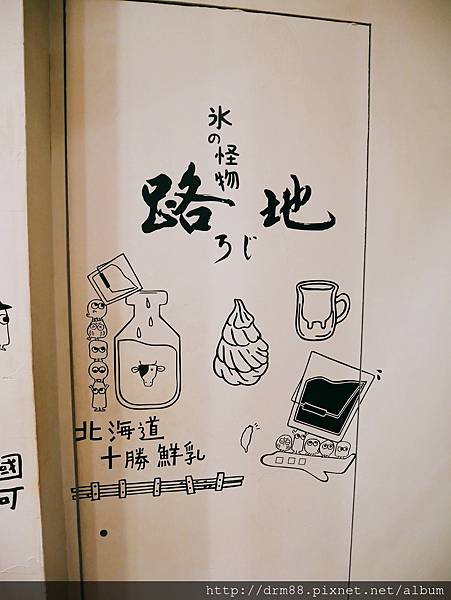 氷の怪物
路地
ろじ
北海道
十勝鮮乳
國
可
http://drm88.pixnet.net/album